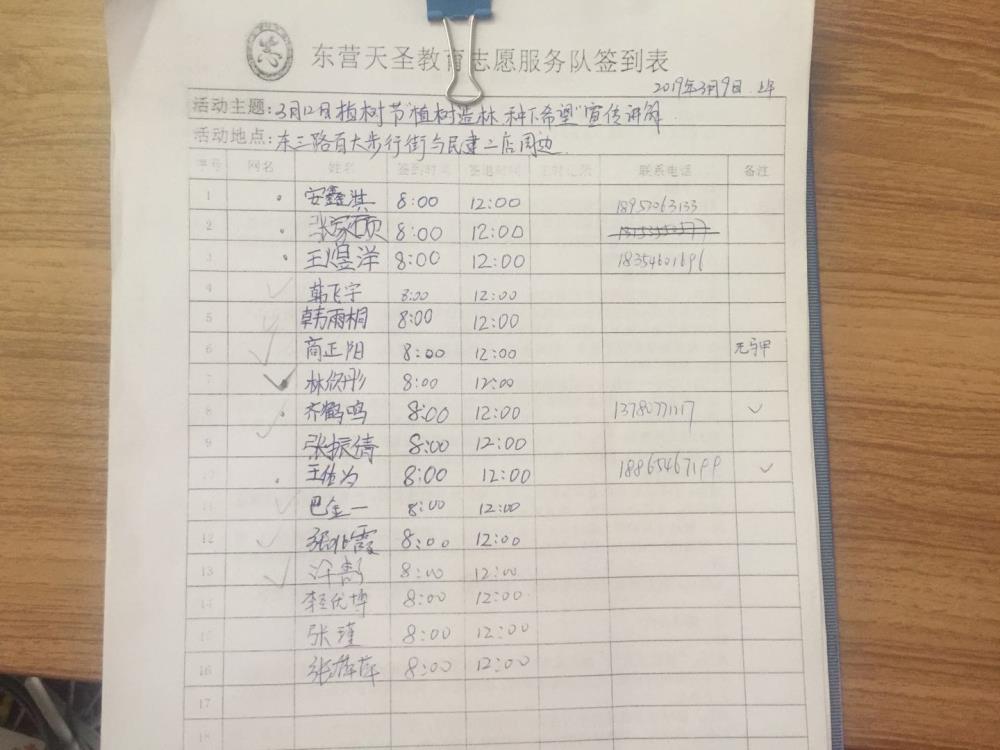 东营天圣教育志愿服务队签到表
2019年3月9日 上午
活动主题:3月12日植树节"植树造林 种下希望"宣传讲解
活动地点:东三路百大步行街与民建二店周边
序号 网名 姓名 签到时间 签退时间 联系电话 备注
1 安鑫淇 8:00 12:00 18957063133
2 张家硕 8:00 12:00
3 王煜洋 8:00 12:00 18354601696
4 韩飞宇 8:00 12:00
5 韩雨桐 8:00 12:00
6 商正阳 8:00 12:00 无马甲
7 林欣彤 8:00 12:00
8 齐鹤鸣 8:00 12:00 13780771117 ✓
9 张振倩 8:00 12:00
10 王佳为 8:00 12:00 18865467199 ✓
11 巴金一 8:00 12:00
12 张兆霞 8:00 12:00
13 8:00 12:00
14 李优博 8:00 12:00
15 张瑾 8:00 12:00
16 张萍萍 8:00 12:00
17
18